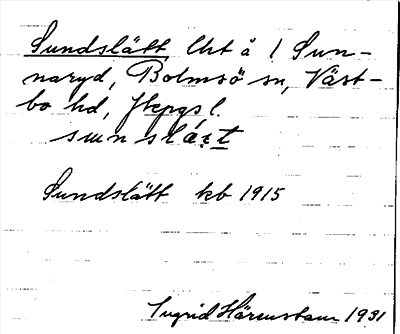 Sundslätt lht å 1 Sun-
naryd, Bolmsö sn, Väst-
bo hd, Jkpgs l.
Sundslätt kb 1915
Ingrid Härenstam 1931